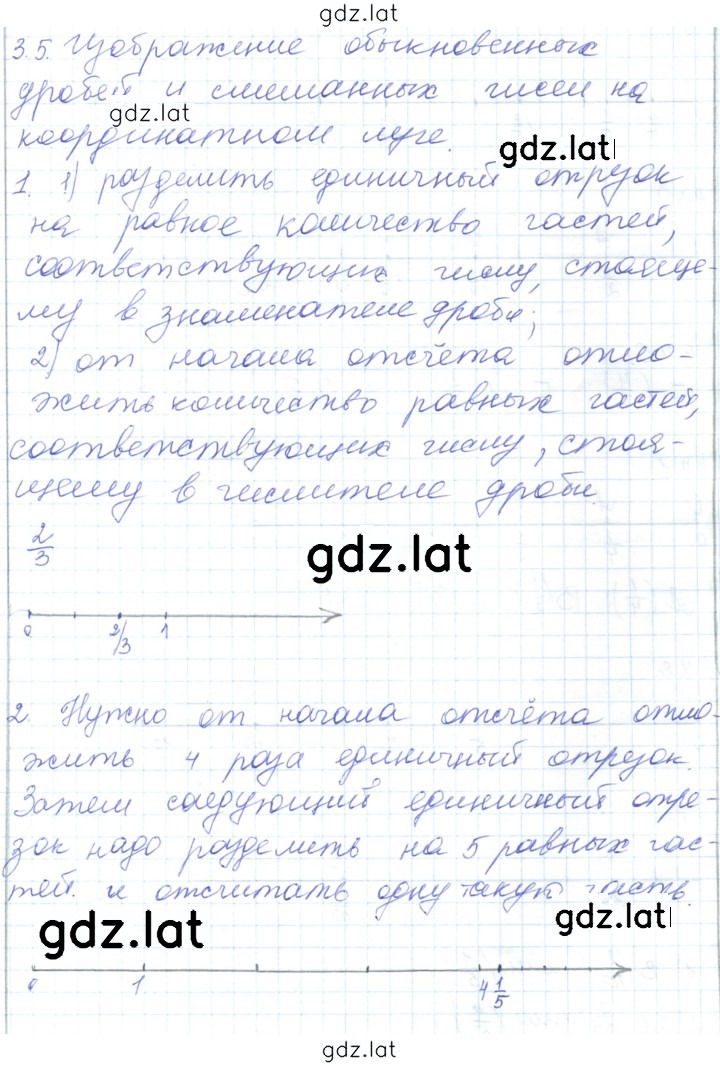 gdz.lat
3.5. Изображение обыкновенных
дробей и смешанных чисел на
gdz.lat
координатном луче.
gdz.lat
1. 1) разделить единичный отрезок
на равное количество частей,
соответствующих числу, стояще-
му в знаменателе дроби;
2) от начала отсчёта отло-
жить количество равных частей,
соответствующих числу, стоя-
щему в числителе дроби.
2/3
gdz.lat
0 2/3 1
2. Нужно от начала отсчёта отло-
жить 4 раза единичный отрезок.
Затем следующий единичный отре-
зок надо разделить на 5 равных час-
тей и отсчитать одну такую часть.
gdz.lat
gdz.lat
0 1 4 1/5
gdz.lat